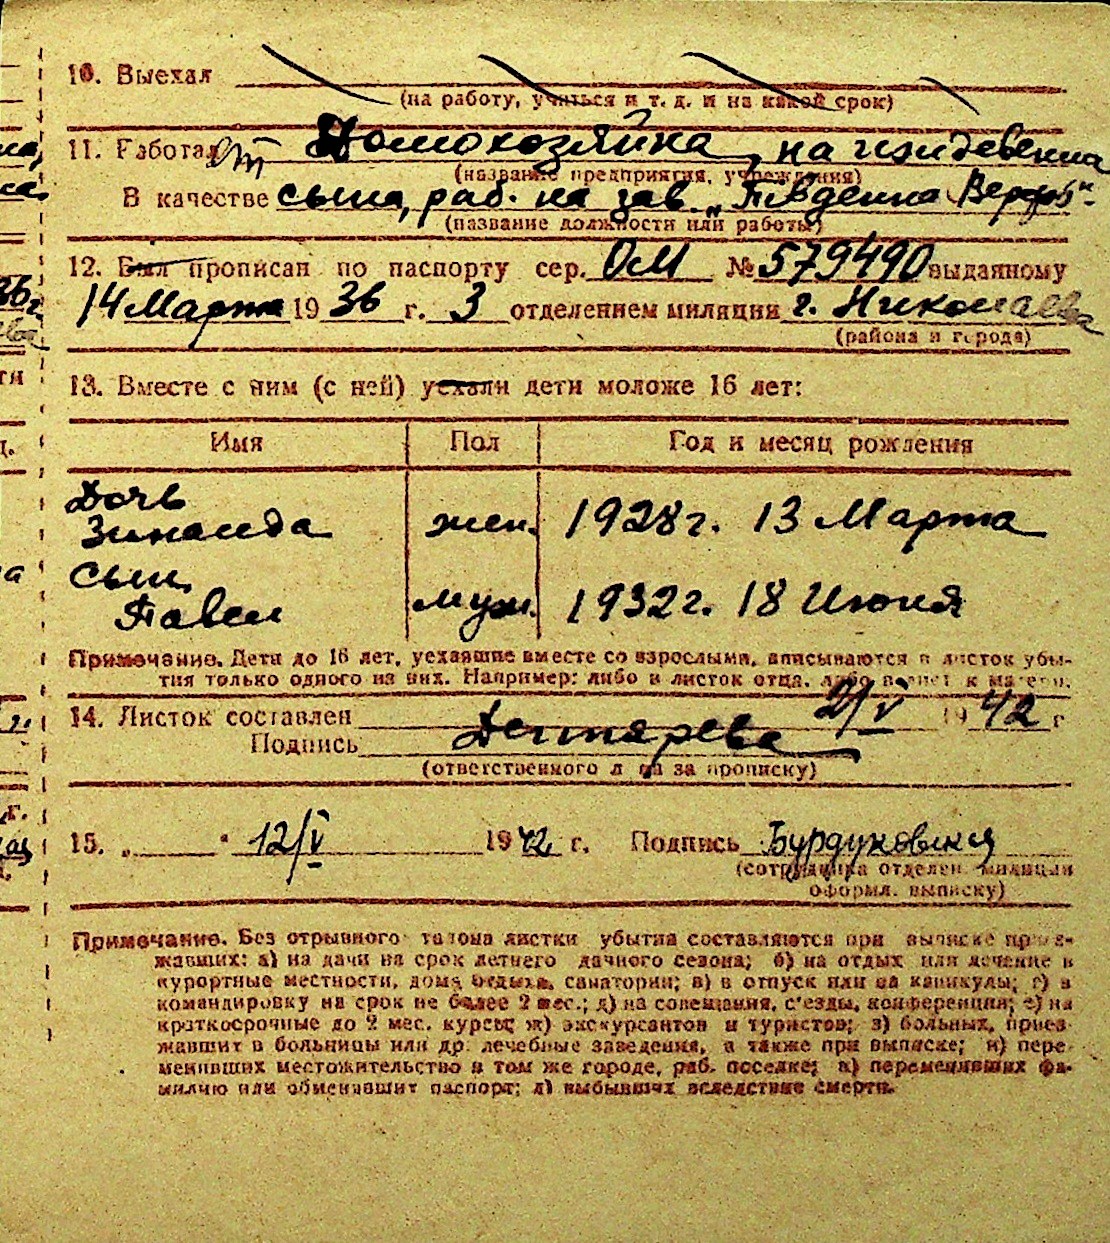 10. Выехал
(на работу, учиться и т. д. и на какой срок)
11. Работал ет Домохозяйка, на иждевении
(название предприятия, учреждения)
В качестве сына, раб. на зав. „Південна Верфь"
(название должности или работы)
12. Был прописан по паспорту сер. ОМ № 579490 выданному
14 Марта 1936 г. 3 отделением милиции г. Николаева
(района и города)
13. Вместе с ним (с ней) уехали дети моложе 16 лет:
Имя Пол Год и месяц рождения
Дочь
Зинаида жен. 1928 г. 13 Марта
сын
Павел муж. 1932 г. 18 Июня
Примечание. Дети до 16 лет, уехавшие вместе со взрослыми, вписываются в листок убы-
тия только одного из них. Например: либо в листок отца, либо в листок матери.
14. Листок составлен 2/V 1942 г
Подпись Дегтярева
(ответственного лица за прописку)
15. „ " 12/V 1942 г. Подпись Бурдуковская
(сотрудника отделен. милиции
оформл. выписку)
Примечание. Без отрывного талона листки убытия составляются при выписке приез-
жавших: а) на дачи на срок летнего дачного сезона; б) на отдых или лечение в
курортные местности, дома отдыха, санатории; в) в отпуск или на каникулы; г) в
командировку на срок не более 2 мес.; д) на совещания, съезды, конференции; е) на
краткосрочные до 2 мес. курсы; ж) экскурсантов и туристов; з) больных, приез-
жавшит в больницы или др. лечебные заведения, а также при выписке; и) пере-
менивших местожительство в том же городе, раб. поселке; к) переменивших фа-
милию или обменявшит паспорт; л) выбывших вследствие смерти.